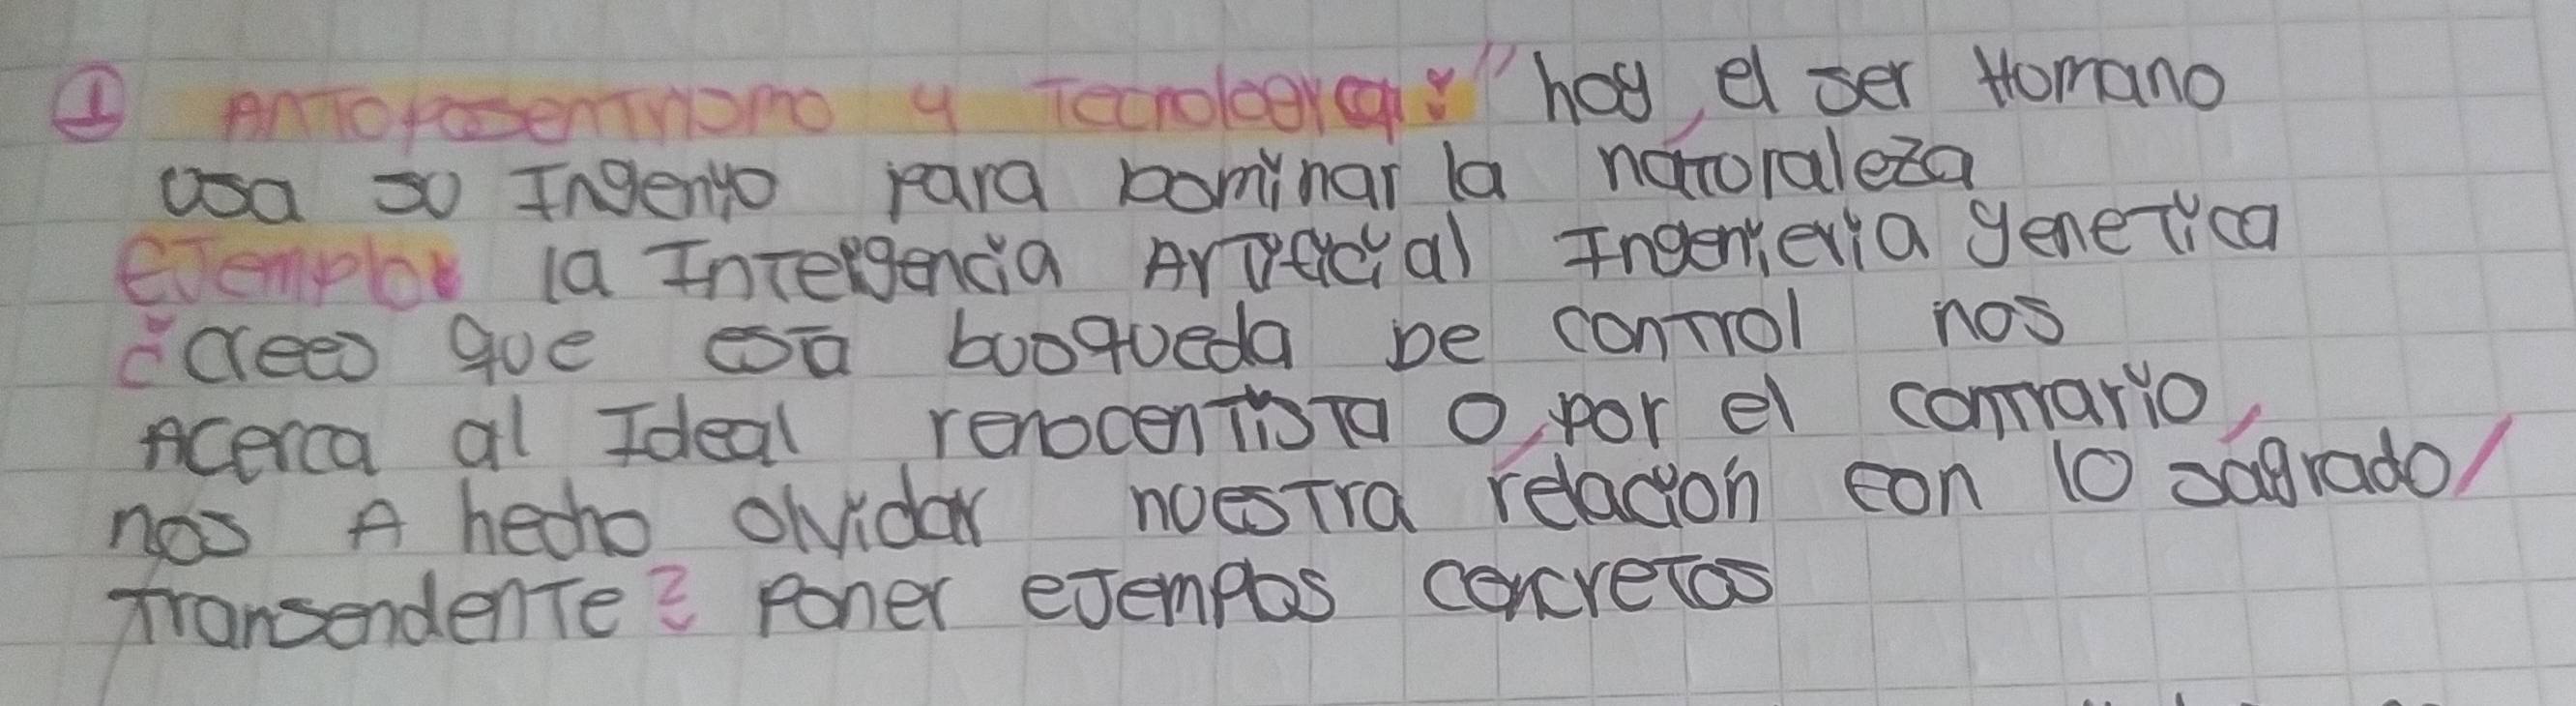 ① Antoposentrismo y Tecnologica: "hoy, el ser Homano
usa su Ingenio para Dominar la naturaleza
Ejemplo: la Inteligencia Artificial Ingenieria genetica
¿crees que esa busqueda De control nos
Acerca al Ideal renacentista o, por el contrario,
nos A hecho olvidar nuestra relación con lo sagrado/
Transendente? Poner ejemplos concretos